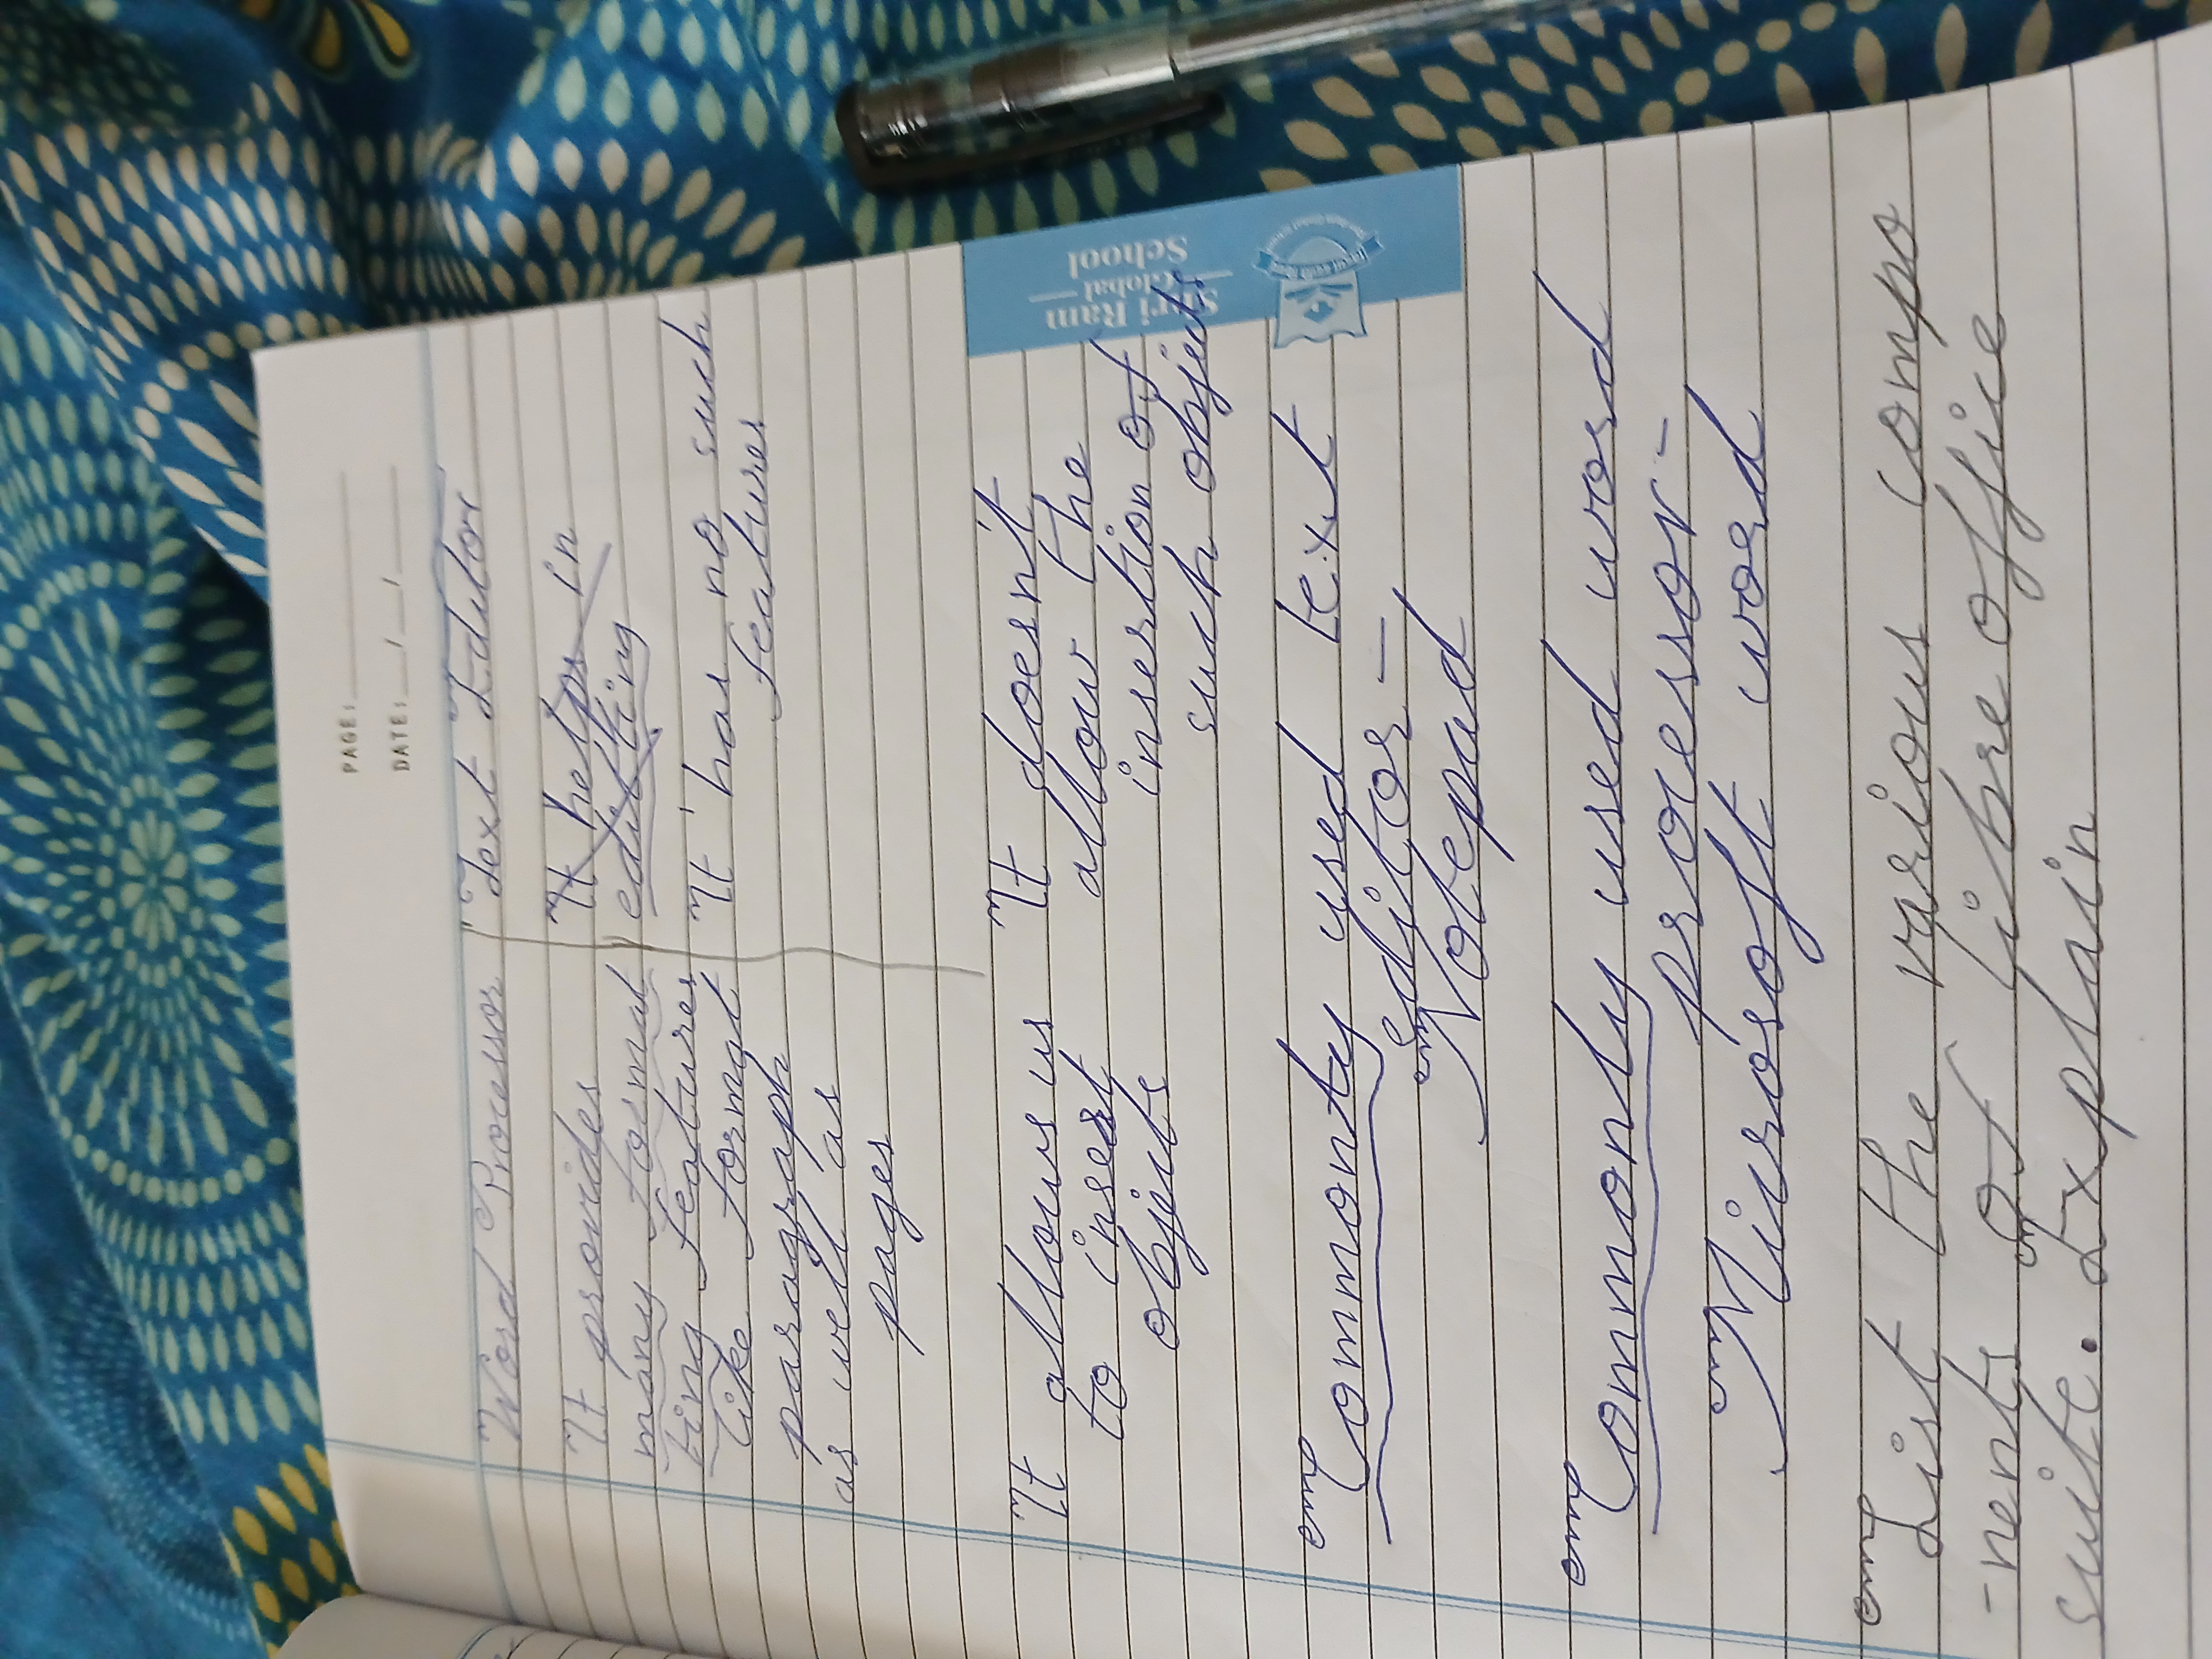 PAGE:
DATE: / /
Word Processor Text Editor
It provides It helps in
many format editing
ting features It has no such
like format features
paragraph
as well as
pages
It allows us It doesn't
to insert allow the
objects insertion of
such objects
Shri Ram
Global
School
Commonly used text
editor -
Notepad
Commonly used word
processor -
Microsoft word
List the various compo
-nents of libre office
suite. Explain